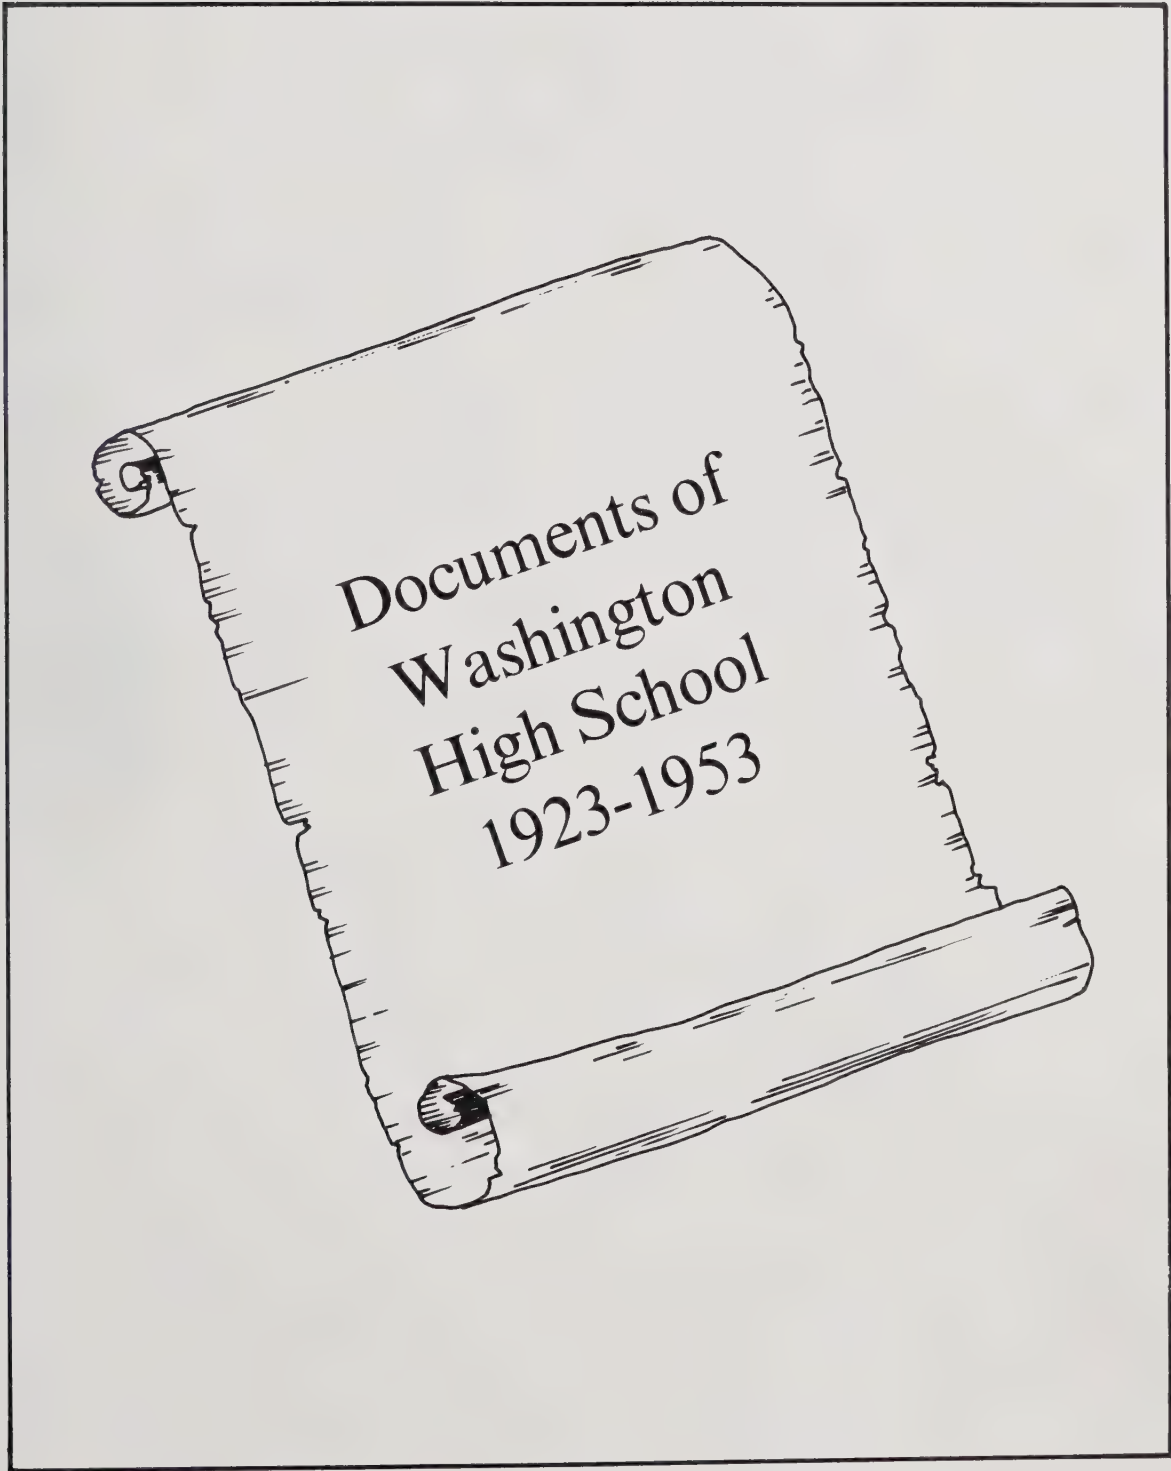 Documents of
Washington
High School
1923-1953